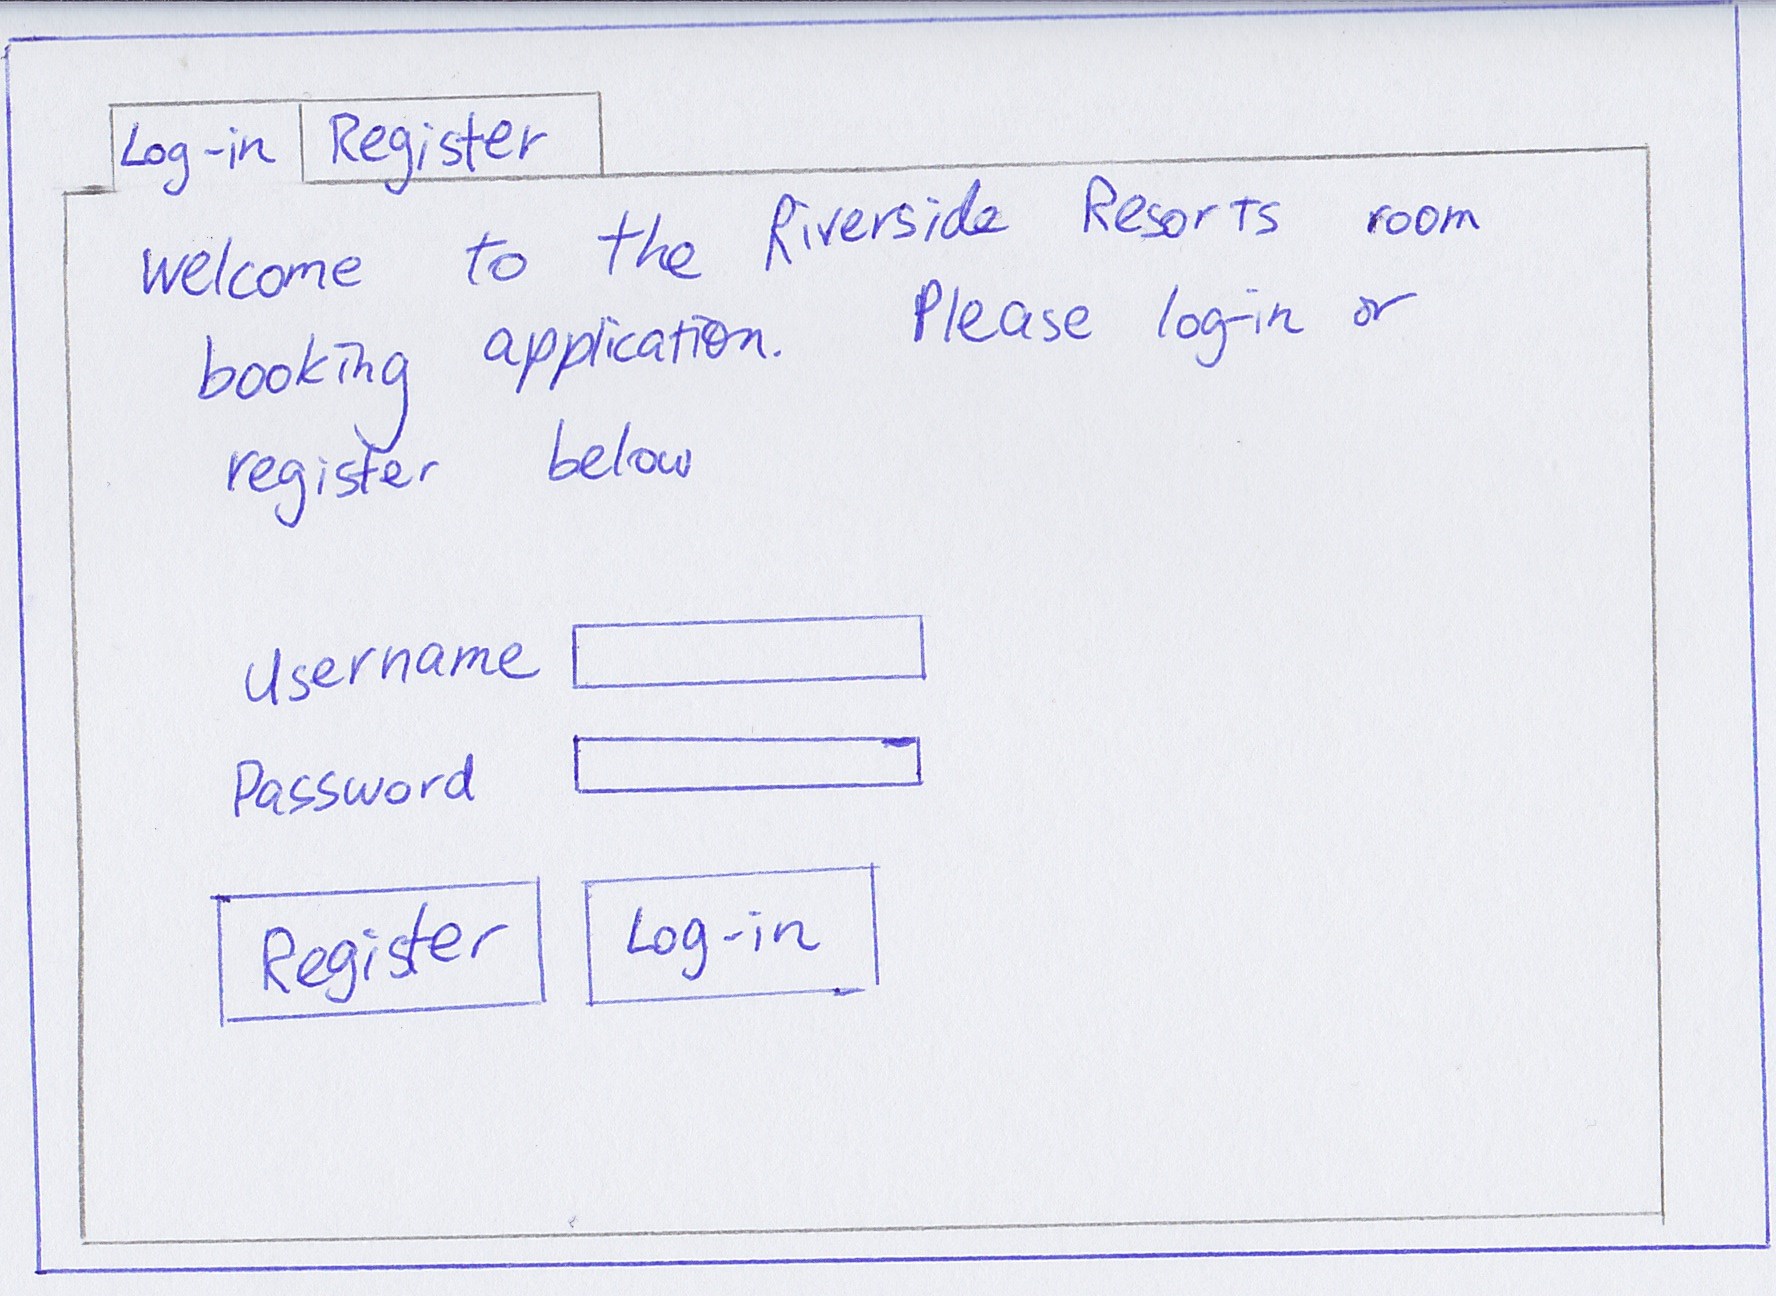 Log-in Register
Welcome to the Riverside Resorts room
booking application. Please log-in or
register below
Username
Password
Register Log-in